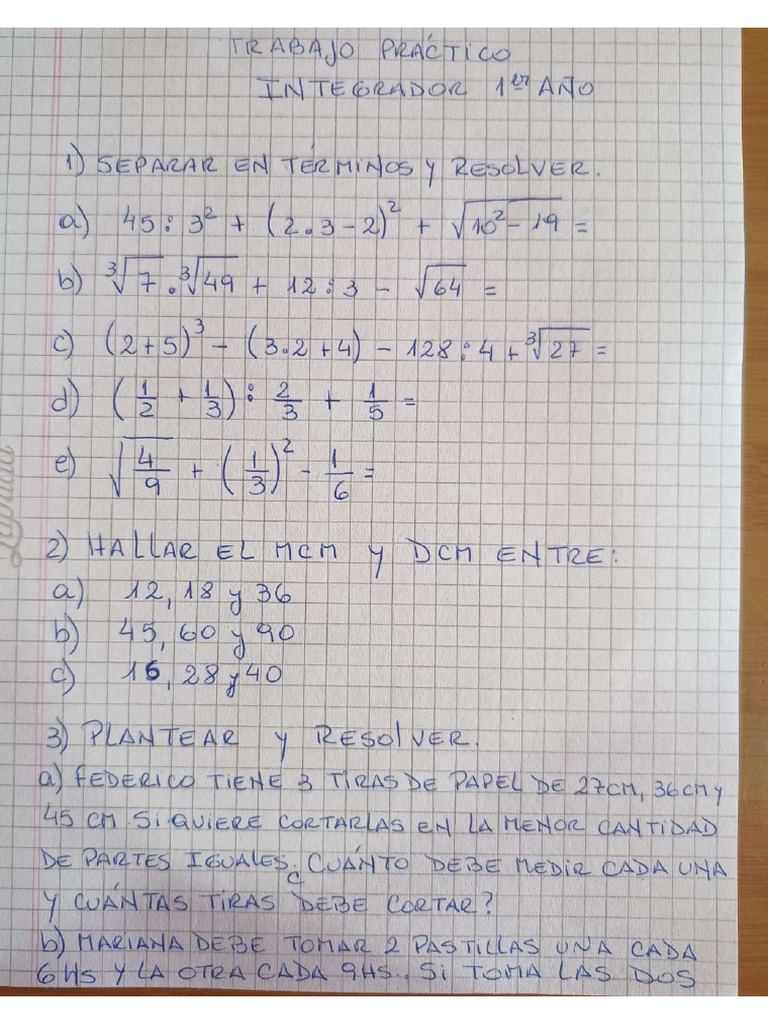 TRABAJO PRÁCTICO
INTEGRADOR 1er AÑO
1) SEPARAR EN TÉRMINOS Y RESOLVER.
a) 45 : 3² + (2.3-2)² + √(10²-19) =
b) ³√7 . ³√49 + 12:3 - √64 =
c) (2+5)³ - (3.2+4) - 128:4 + ³√27 =
d) (1/2 + 1/3) : 2/3 + 1/5 =
e) √(4/9) + (1/3)² - 1/6 =
2) HALLAR EL MCM Y DCM ENTRE:
a) 12, 18 y 36
b) 45, 60 y 90
c) 16, 28 y 40
3) PLANTEAR Y RESOLVER.
a) FEDERICO TIENE 3 TIRAS DE PAPEL DE 27CM, 36CM Y
45 CM. SI QUIERE CORTARLAS EN LA MENOR CANTIDAD
DE PARTES IGUALES ¿CUÁNTO DEBE MEDIR CADA UNA
Y CUÁNTAS TIRAS DEBE CORTAR?
b) MARIANA DEBE TOMAR 2 PASTILLAS UNA CADA
6HS Y LA OTRA CADA 9HS. SI TOMA LAS DOS